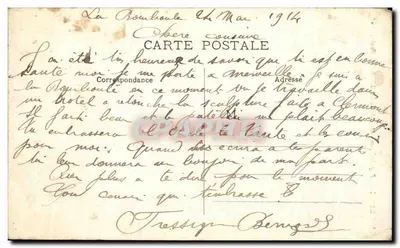 La Bourboule 24 Mai 1914
Chère cousine
CARTE POSTALE
Correspondance
Adresse
J'ai été très heureuse de savoir que tu est en bonne
santé moi je me porte a merveille je suis a
La Bourboule en ce moment ou je travaille dans
un hotel a la sculpture fait a Clermont
Il fait beau et la me plait beaucoup
Tu embrassera la tante et le cousin
pour moi. Quand tu écrira a tes parents
tu en donnera un bonjour de ma part.
Rien plus a te dire pour le moment
Ton cousin qui t'embrasse
Tressign